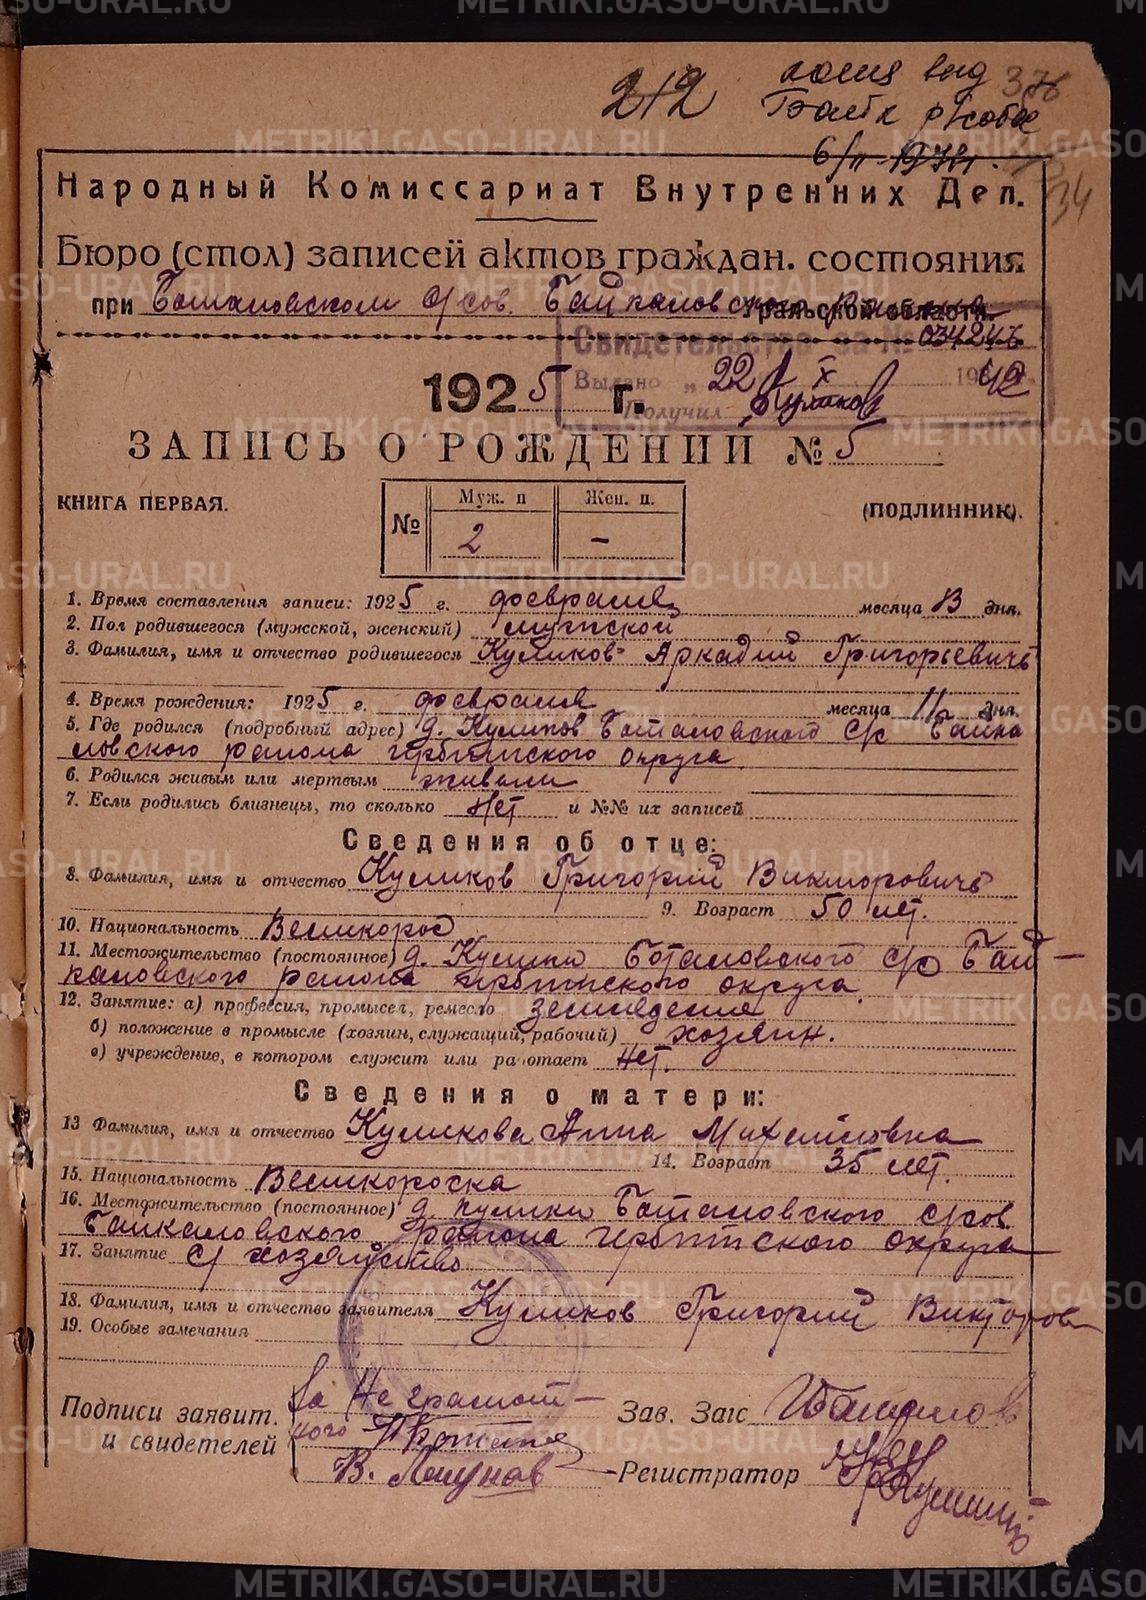 212
копия выд 376
Байк р/собес
6/II-1974г.
34
Народный Комиссариат Внутренних Дел.
Бюро (стол) записей актов граждан. состояния
при Боталовском с/сов. Байкаловского района Уральской области.
Свидетельство за № 034246
Выдано „ 22 / X 1942
Получил Куликов
1925 г.
ЗАПИСЬ О РОЖДЕНИИ № 5
КНИГА ПЕРВАЯ.
(ПОДЛИННИК).
№ Муж. п Жен. п.
2 –
1. Время составления записи: 1925 г. февраля месяца 13 дня.
2. Пол родившегося (мужской, женский) мужской
3. Фамилия, имя и отчество родившегося Куликов Аркадий Григорьевичъ
4. Время рождения: 1925 г. февраля месяца 11 дня.
5. Где родился (подробный адрес) д. Куликов Боталовского С/с Байка
ловского района ирбитского округа.
6. Родился живым или мертвым живым
7. Если родились близнецы, то сколько Нет и №№ их записей
Сведения об отце:
8. Фамилия, имя и отчество Куликов Григорий Викторовичъ
9. Возраст 50 лет.
10. Национальность Великорос
11. Местожительство (постоянное) д. Кулики Боталовского с/с Бай-
каловского района ирбитского округа.
12. Занятие: а) профессия, промысел, ремесло земледелие
б) положение в промысле (хозяин, служащий, рабочий) хозяин.
в) учреждение, в котором служит или работает Нет.
Сведения о матери:
13 Фамилия, имя и отчество Куликова Анна Михайловна
14. Возраст 35 лет.
15. Национальность Великороска
16. Местожительство (постоянное) д. кулики Боталовского с/сов
Байкаловского района ирбитского округа
17. Занятие с/ хозяйство
18. Фамилия, имя и отчество заявителя Куликов Григорий Викторов
19. Особые замечания
Подписи заявит.
и свидетелей
За Не грамот-
ного
В.
Зав. Загс
Регистратор
METRIKI.GASO-URAL.RU